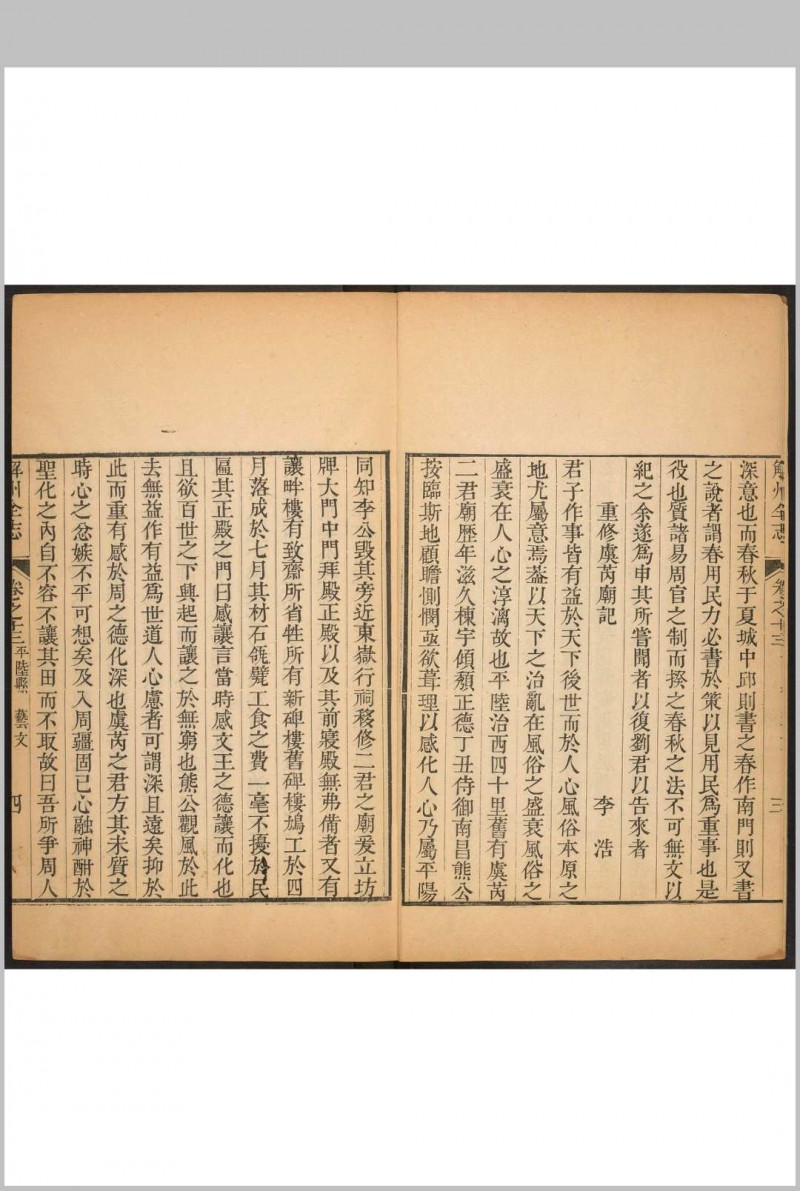 解州全志 卷之十三 三
深意也而春秋于夏城中邱則書之春作南門則又書
之說者謂春用民力必書於策以見用民爲重事也是
役也質諸易周官之制而揆之春秋之法不可無文以
紀之余遂爲申其所嘗聞者以復劉君以告來者
重修虞芮廟記 李浩
君子作事皆有益於天下後世而於人心風俗本原之
地尤屬意焉葢以天下之治亂在風俗之盛衰風俗之
盛衰在人心之淳漓故也平陸治西四十里舊有虞芮
二君廟歷年滋久棟宇傾頹正德丁丑侍御南昌熊公
按臨斯地顧瞻惻憫亟欲葺理以感化人心乃屬平陽
同知李公毀其旁近東嶽行祠移修二君之廟爰立坊
牌大門中門拜殿正殿以及其前寢殿無弗備者又有
讓畔樓有致齋所省牲所有新碑樓舊碑樓鳩工於四
月落成於七月其材石瓴甓工食之費一毫不擾於民
區其正殿之門曰感讓言當時感文王之德讓而化也
且欲百世之下興起而讓之於無窮也熊公觀風於此
去無益作有益爲世道人心慮者可謂深且遠矣抑於
此而重有感於周之德化深也虞芮之君方其未質之
時心之忿嫉不平可想矣及入周疆固已心融神酣於
聖化之內自不容不讓其田而不取故曰吾所爭周人
解州全志 卷之十三 平陸縣 藝文 四